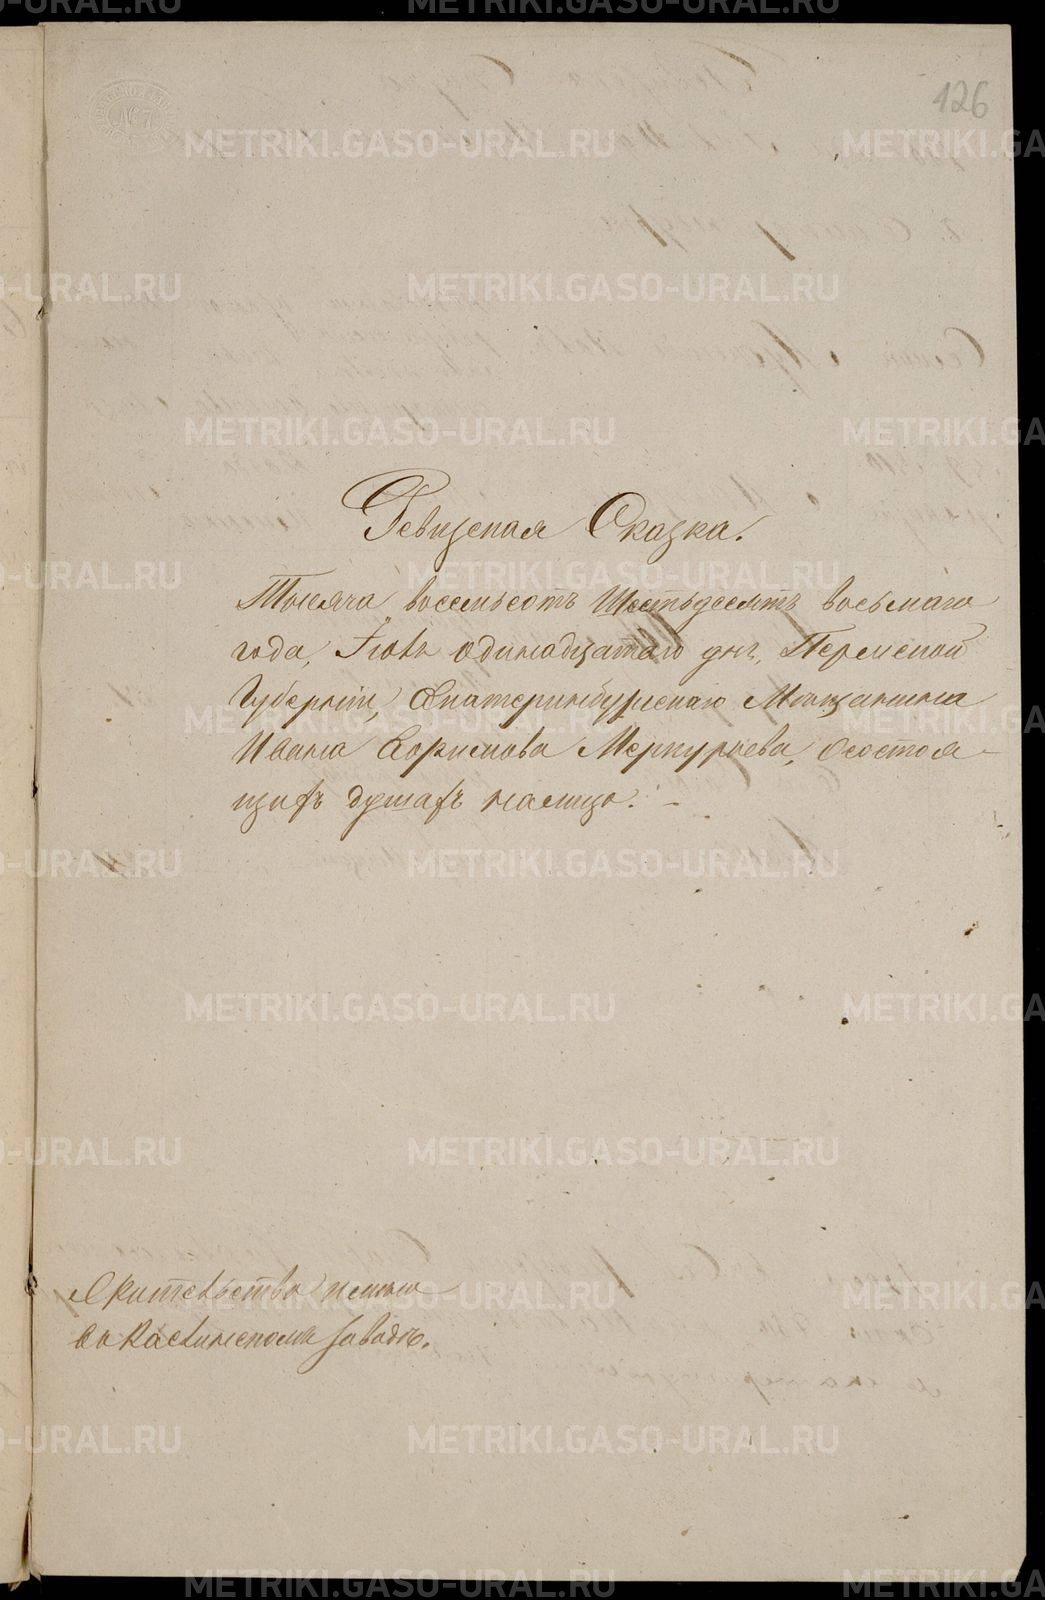 126
Ревизская Сказка.
Тысяча восемьсотъ Шестьдесятъ восьмаго
года, Іюля одинадцатаго дня, Пермской
Губерніи, Екатеринбургскаго Мещанина
Ивана Борисова Меркурьева, Осостоя-
щихъ душахъ налицо. –
Жительство имею
въ Каслинскомъ заводѣ.
METRIKI.GASO-URAL.RU